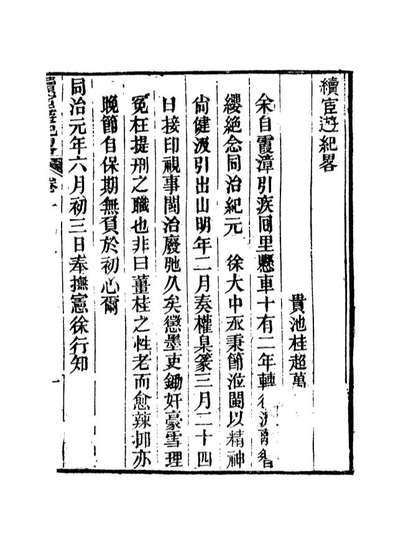 續宦遊紀畧
貴池桂超萬
余自霞漳引疾囘里懸車十有二年轉徙流離簪
纓絶念同治紀元 徐大中丞秉節涖閩以精神
尙健汲引出山明年二月奏權臬篆三月二十四
日接印視事閩治廢弛久矣懲墨吏鋤奸豪雪理
冤枉提刑之職也非曰薑桂之性老而愈辣抑亦
晚節自保期無負於初心爾
同治元年六月初三日奉撫憲徐行知
續宦遊紀畧 卷一 一